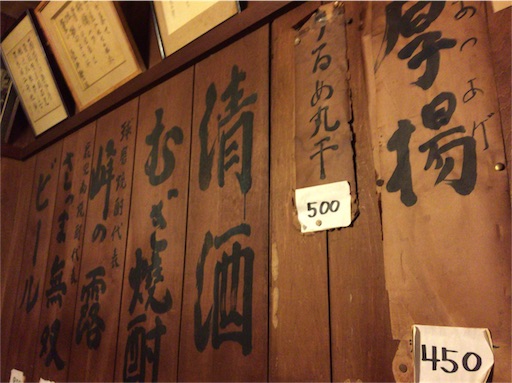 あつよげ
厚揚
450
うるめ丸干
500
清酒
むぎ焼酎
峰の露
さつま無双
ビール